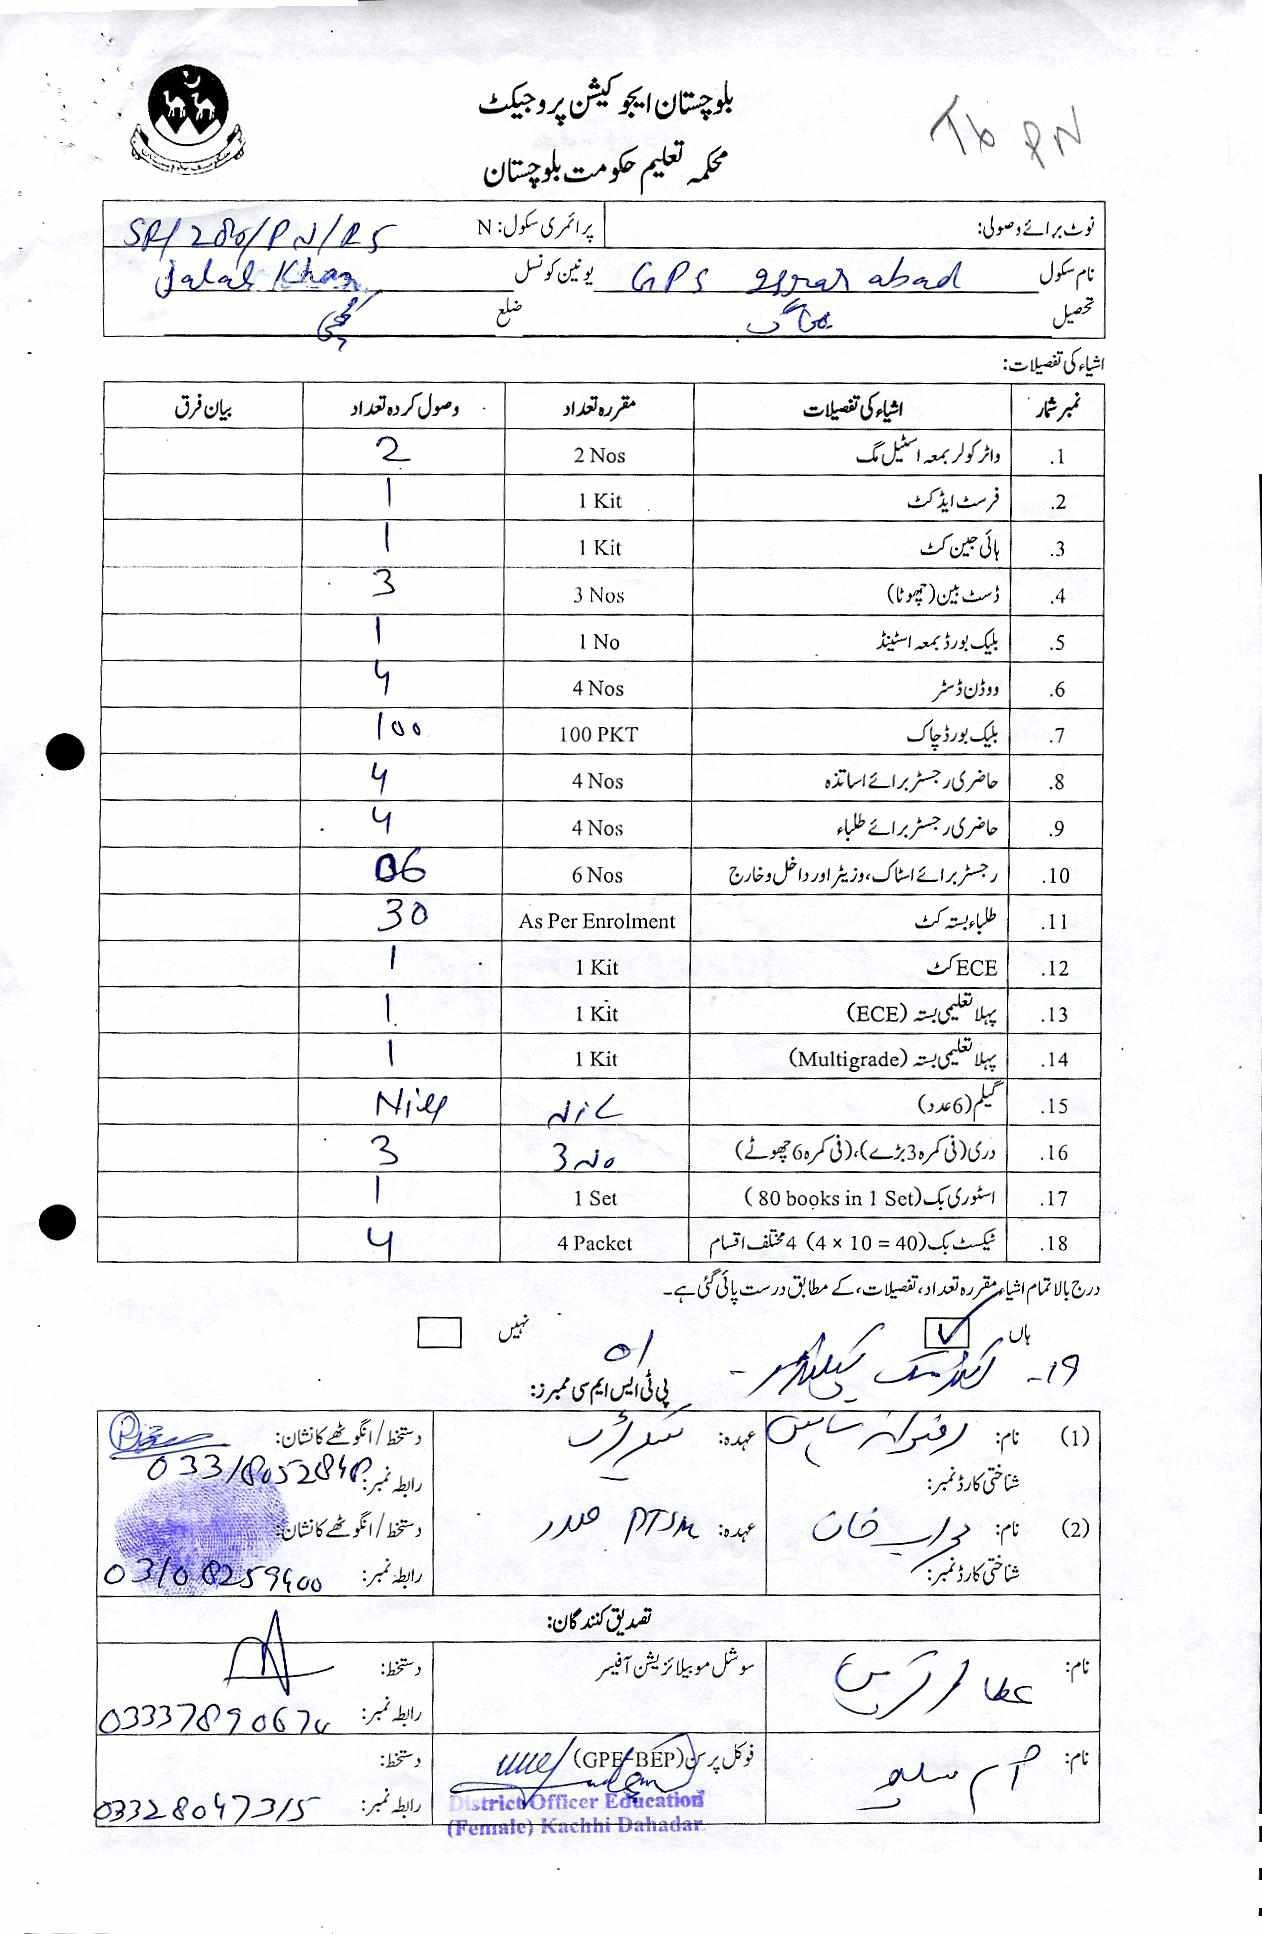 بلوچستان ایجوکیشن پروجیکٹ
Tb PN
محکمہ تعلیم حکومت بلوچستان
نوٹ برائے وصولی: پرائمری سکول: N
نام سکول GPS abad یونین کونسل Jalal Khan
تحصیل بھاگ ضلع کچھی
اشیاء کی تفصیلات:
نمبر شمار اشیاء کی تفصیلات مقررہ تعداد وصول کردہ تعداد بیان فرق
1. واٹر کولر بمعہ اسٹیل مگ 2 Nos 2
2. فرسٹ ایڈ کٹ 1 Kit 1
3. ہائی جین کٹ 1 Kit 1
4. ڈسٹ بین (چھوٹا) 3 Nos 3
5. بلیک بورڈ بمعہ اسٹینڈ 1 No 1
6. ووڈن ڈسٹر 4 Nos 4
7. بلیک بورڈ چاک 100 PKT 100
8. حاضری رجسٹر برائے اساتذہ 4 Nos 4
9. حاضری رجسٹر برائے طلباء 4 Nos 4
10. رجسٹر برائے اسٹاک، وزیٹر اور داخل و خارج 6 Nos 06
11. طلباء بستہ کٹ As Per Enrolment 30
12. ECE کٹ 1 Kit 1
13. پہلا تعلیمی بستہ (ECE) 1 Kit 1
14. پہلا تعلیمی بستہ (Multigrade) 1 Kit 1
15. گیلم (6 عدد) NiL Nill
16. دری (فی کمرہ 3 بڑے)، (فی کمرہ 6 چھوٹے) 3 No 3
17. اسٹوری بک (80 books in 1 Set) 1 Set 1
18. ٹیکسٹ بک (4 × 10 = 40) 4 مختلف اقسام 4 Packet 4
درج بالا تمام اشیاء مقررہ تعداد، تفصیلات، کے مطابق درست پائی گئی ہے۔
ہاں نہیں
19- 01
پی ٹی ایس ایم سی ممبرز:
(1) نام: عہدہ: دستخط / انگوٹھے کا نشان:
شناختی کارڈ نمبر: رابطہ نمبر: 03318052848
(2) نام: خان عہدہ: صدر PTSM دستخط / انگوٹھے کا نشان:
شناختی کارڈ نمبر: رابطہ نمبر: 03108259400
تصدیق کنندگان:
نام: سوشل موبیلائزیشن آفیسر دستخط:
رابطہ نمبر: 03337890674
نام: فوکل پرسن (GPE-BEP) دستخط:
رابطہ نمبر: 03328047315
District Officer Education
(Female) Kachhi Dahadar